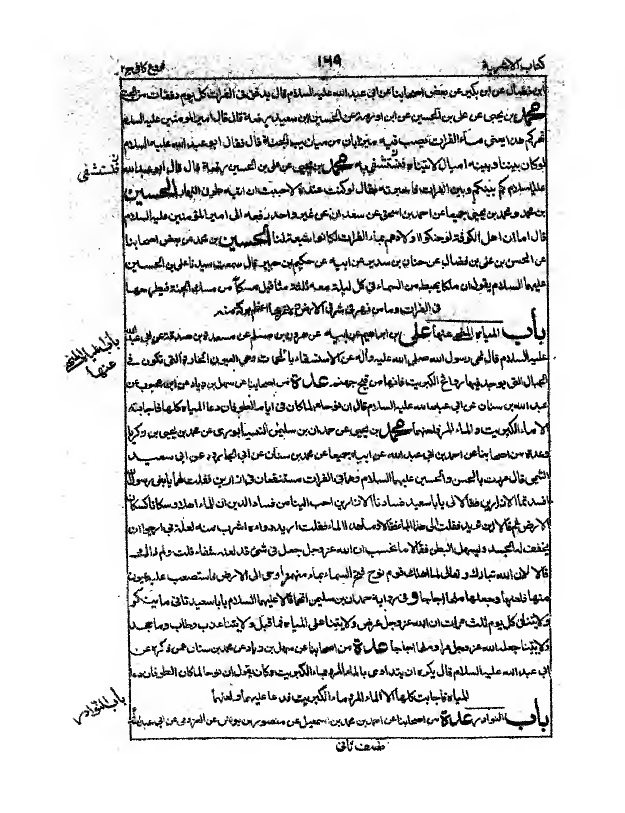 كتاب الاشربة ١٦٩ فروع كافى ج٢
ابن فضال عن ابن بكير عن بعض اصحابنا عن ابى عبد الله عليه السلام قال يدفق فى الفرات كل يوم دفقات من الجنة
محمد بن يحيى عن على بن الحسين عن ابن اورمة عن الحسين بن سعيد رفعه قال قال امير المؤمنين عليه السلام
نهركم هذا يعنى ماء الفرات يصب فيه ميزابان من ميازيب الجنة قال فقال ابو عبد الله عليه السلام
لو كان بيننا وبينه اميال لاتيناه فنستشفى به محمد بن يحيى عن على بن الحسين رفعه قال قال ابو عبد الله
فنستشفى
عليه السلام كم بينكم وبين الفرات فاخبرته فقال لو كنت عنده لاحببت ان اتيه طرفى النهار الحسين
بن محمد ومحمد بن يحيى جميعا عن احمد بن اسحق عن سعدان عن غير واحد رفعه الى امير المؤمنين عليه السلام
قال اما ان اهل الكوفة لو حنكوا اولادهم بماء الفرات لكانوا شيعة لنا الحسين بن محمد عن بعض اصحابنا
عن الحسن بن على بن فضال عن حنان بن سدير عن ابيه عن حكيم بن جبير قال سمعت سيدنا على بن الحسين
عليهما السلام يقول ان ملكا يهبط من السماء فى كل ليلة معه ثلثة مثاقيل مسكا من مسك الجنة فيطرحها
فى الفرات وما من نهر فى شرق الارض ولا غربها اعظم بركة منه
باب المياه المنهى عنها على بن ابراهيم عن ابيه عن هرون بن مسلم عن مسعدة بن صدقة عن ابى عبد الله
باب المياه المنهى عنها
عليه السلام قال نهى رسول الله صلى الله عليه وآله عن الاستشفاء بالحمات وهى العيون الحارة التى تكون فى
الجبال التى يوجد فيها روائح الكبريت فانها من فيح جهنم عدة من اصحابنا عن سهل بن زياد عن ابن محبوب عن
عبد الله بن سنان عن ابى عبد الله عليه السلام قال ان نوحا لما كان فى ايام الطوفان دعا المياه كلها فاجابته
الا ماء الكبريت والماء المر فلعنهما محمد بن يحيى عن حمدان بن سليمن النيسابورى عن محمد بن يحيى بن زكريا
وعدة من اصحابنا عن احمد بن ابى عبد الله عن ابيه جميعا عن محمد بن سنان عن ابى الجارود عن ابى سعيد
التيمى قال مررت بالحسن والحسين عليهما السلام وهما فى الفرات مستنقعان فى ازارين فقلت لهما يا بنى رسول الله
افسدتما الازارين فقالا لى يا با سعيد فسادنا الازارين احب الينا من فساد الدين ان للماء اهلا وسكانا كسكان
الارض ثم قالا اين تريد فقلت الى هذا الماء فقالا وما هذا الماء فقلت اريد دواءه اشرب منه لعلة بى ارجوا ان
يخفف له الجسد ويسهل البطن فقالا ما نحسب ان الله عز وجل جعل فى شئ قد لعنه شفاء قلت ولم ذلك
قالا لان الله تبارك وتعالى لما آسفه قوم نوح فتح السماء بماء منهمر واوحى الى الارض فاستصعب عليه عيون
منها فلعنها وجعلها ملحا اجاجا وفى رواية حمدان بن سليمن انهما قالا عليهما السلام يا با سعيد تاتى ماء ينكر
ولايتنا فى كل يوم ثلث مرات ان الله عز وجل عرض ولايتنا على المياه فما قبل ولايتنا عذب وطاب وما جحد
ولايتنا جعله الله عز وجل مرا وملحا اجاجا عدة من اصحابنا عن سهل بن زياد عن محمد بن سنان عن ذكره عن
ابى عبد الله عليه السلام قال يكره ان يتداوى بالماء المر وبماء الكبريت وكان يقول ان نوحا لما كان الطوفان دعا
المياه فاجابته كلها الا الماء المر وماء الكبريت فدعا عليهما ولعنهما
باب النوادر عدة من اصحابنا عن احمد بن محمد بن اسمعيل عن منصور بن يونس عن العزرمى عن ابى عبد الله
باب النوادر